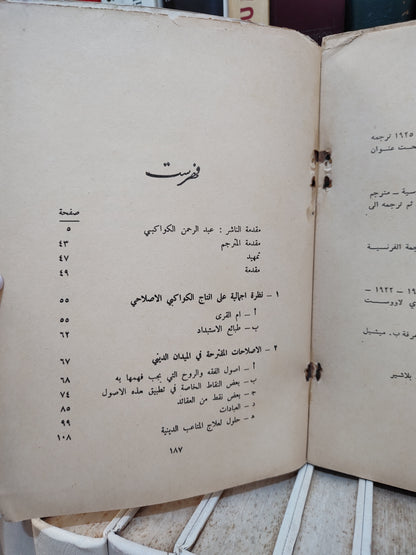 فهرست
صفحة
مقدمة الناشر : عبد الرحمن الكواكبي ٥
مقدمة المترجم ٤٣
تمهيد ٤٧
مقدمة ٤٩
١ – نظرة اجمالية على انتاج الكواكبي الاصلاحي ٥٥
أ – ام القرى ٥٥
ب – طبائع الاستبداد ٦٢
٢ – الاصلاحات المقترحة في الميدان الديني ٦٧
أ – اصول الفقه والروح التي يجب فهمها به ٦٨
ب – بعض النقاط الخاصة في تطبيق هذه الاصول ٧٤
ج – بعض نقط من العقائد ٨٥
د – العبادات ٩٩
ه – حلول لعلاج المتاعب الدينية ١٠٨
١٨٧
١٩٢٥ ترجمه
حت عنوان
ية – مترجم
ثم ترجمه الى
جمة الفرنسية
١٩ – ١٩٢٢ –
ي لاووست
مرفة ب. ميشيل
بلاشير